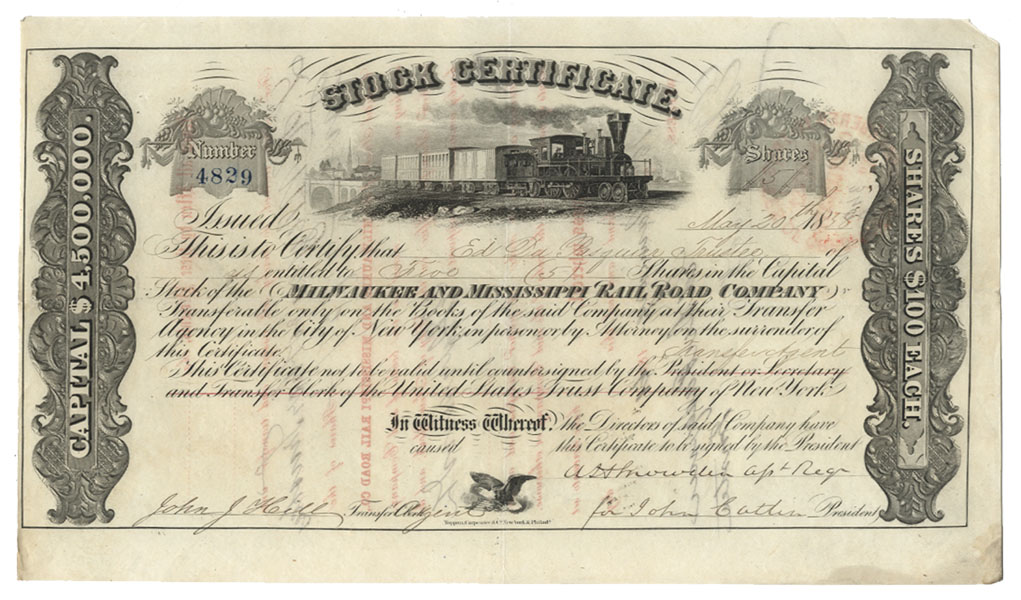 STOCK CERTIFICATE.
Number
4829
Shares
5
CAPITAL $ 4,500,000.
SHARES $100 EACH.
Issued May 20th 185
This is to Certify that Ed Du Trustee of
entitled to Five (5) Shares in the Capital
Stock of the MILWAUKEE AND MISSISSIPPI RAIL ROAD COMPANY
Transferable only on the Books of the said Company at their Transfer
Agency in the City of New York, in person or by Attorney on the surrender of
this Certificate. Transfer Agent
This Certificate not to be valid until countersigned by the President or Secretary
and Transfer Clerk of the United States Trust Company of New York.
In Witness Whereof, the Directors of said Company have
caused this Certificate to be signed by the President
John J Hill Transfer Clerk Agent for John Catlin President
Toppan, Carpenter & Co. New York & Philada.